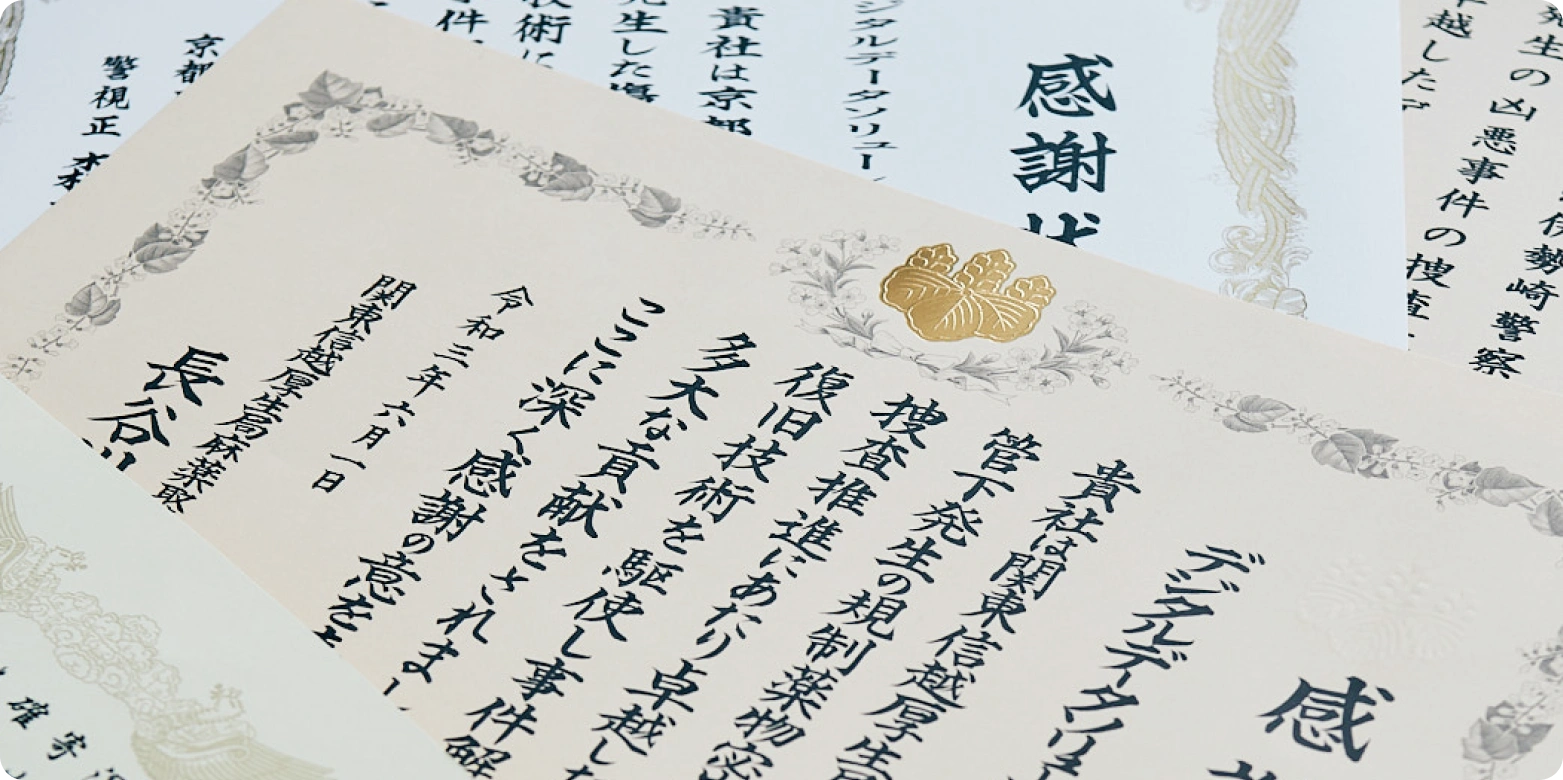 感
デジタルデータソリュー
貴社は関東信越厚生
管下発生の規制薬物密
捜査推進にあたり卓越し
復旧技術を駆使し事件解
多大な貢献をされま
ここに深く感謝の意を
令和三年六月一日
関東信越厚生局麻薬取
長谷川
感謝状
ジタルデータソリュー
貴社は京都
発生した
技術に
件
京都
警視正
発生の凶悪事件の捜査
伊勢崎警察
卓越した
確
寄